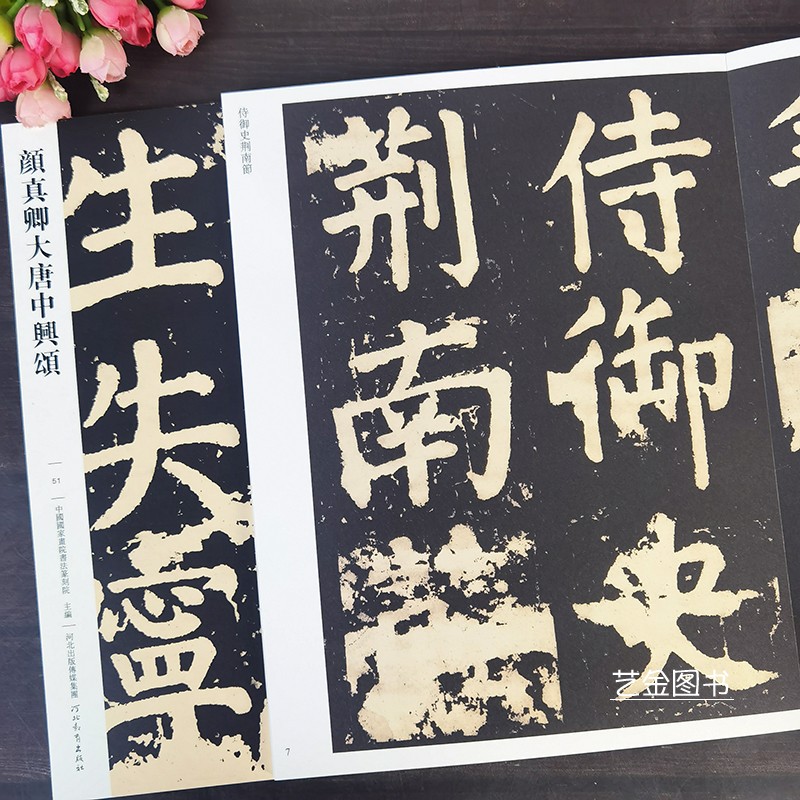 顏真卿大唐中興頌
51
中國國家畫院書法篆刻院 主編
河北出版傳媒集團
河北教育出版社
生失寧
侍御史荊南節
侍御史
荊南
7
艺金图书